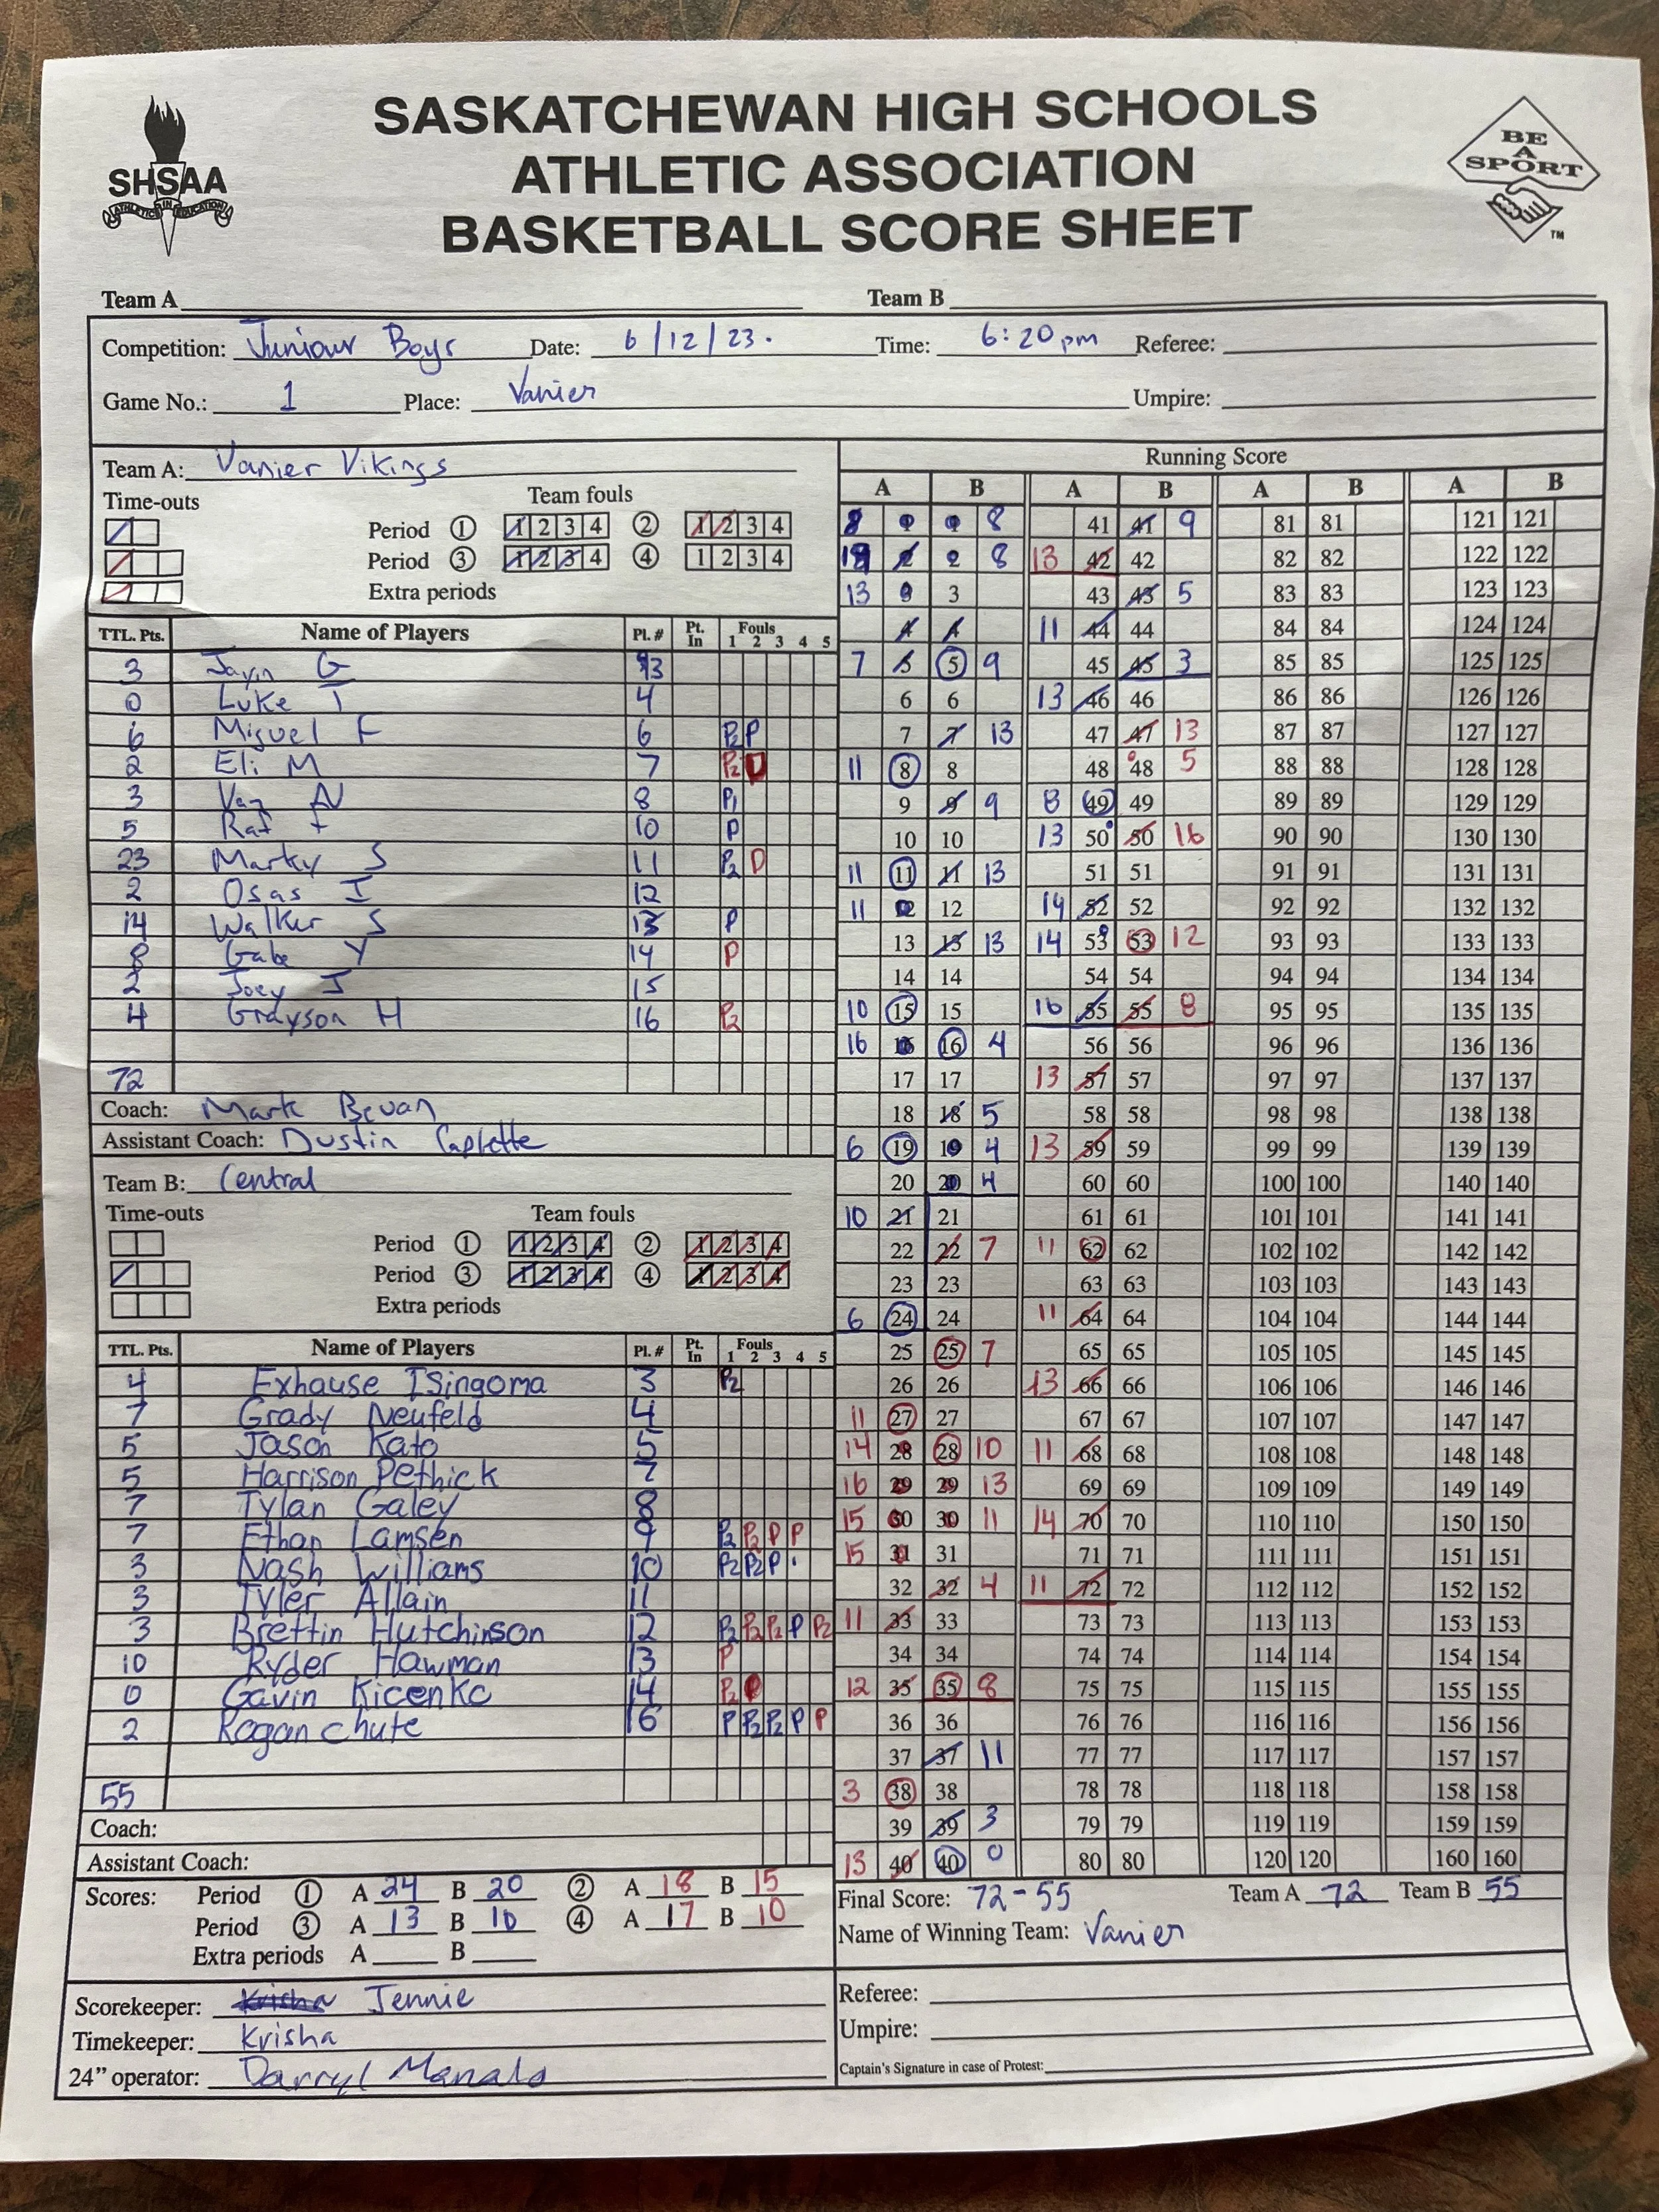 SASKATCHEWAN HIGH SCHOOLS
ATHLETIC ASSOCIATION
BASKETBALL SCORE SHEET
SHSAA
ATHLETICS IN EDUCATION
BE
A
SPORT
TM
Team A Team B
Competition: Juniour Boys Date: 6/12/23. Time: 6:20 pm Referee:
Game No.: 1 Place: Vanier Umpire:
Team A: Vanier Vikings
Time-outs Team fouls
Period 1 1 2 3 4 2 1 2 3 4
Period 3 1 2 3 4 4 1 2 3 4
Extra periods
TTL. Pts. Name of Players Pl. # Pt. In Fouls 1 2 3 4 5
3 Jayin G
0 Luke T 4
6 Miguel F 6 P2 P
2 Eli M 7 P2
3 Vaz N 8 P1
5 Raf 10 P
23 Marky S 11 P2 D
2 Osas I 12
14 Walker S 13 P
8 Gabe Y 14 P
2 Joey J 15
4 Grayson H 16 P2
72
Coach: Mark Bevan
Assistant Coach: Dustin Caplette
Team B: Central
Time-outs Team fouls
Period 1 1 2 3 4 2 1 2 3 4
Period 3 1 2 3 4 4 1 2 3 4
Extra periods
TTL. Pts. Name of Players Pl. # Pt. In Fouls 1 2 3 4 5
4 Exhause ISingoma 3 P2
7 Grady Neufeld 4
5 Jason Kato 5
5 Harrison Pethick 7
7 Tylan Galey 8
7 Ethan Lamsen 9 P2 P2 P P
3 Nash Williams 10 P2 P2 P
3 Tyler Allain 11
3 Brettin Hutchinson 12 P2 P2 P2 P P2
10 Ryder Hawman 13 P
0 Gavin Kicenko 14 P2
2 Rogan chute 16 P P2 P2 P P
55
Coach:
Assistant Coach:
Scores: Period 1 A 24 B 20 2 A 18 B 15
Period 3 A 13 B 10 4 A 17 B 10
Extra periods A B
Scorekeeper: Krisha Jennie
Timekeeper: Krisha
24" operator: Darryl Manalo
Running Score
A B A B A B A B
8 1 1 8 41 41 9 81 81 121 121
2 2 8 13 42 42 82 82 122 122
13 3 3 43 43 5 83 83 123 123
4 4 11 44 44 84 84 124 124
7 5 5 9 45 45 3 85 85 125 125
6 6 13 46 46 86 86 126 126
7 7 13 47 47 13 87 87 127 127
11 8 8 48 48 5 88 88 128 128
9 9 9 8 49 49 89 89 129 129
10 10 13 50 50 16 90 90 130 130
11 11 11 13 51 51 91 91 131 131
11 12 12 14 52 52 92 92 132 132
13 13 13 14 53 53 12 93 93 133 133
14 14 54 54 94 94 134 134
10 15 15 16 55 55 8 95 95 135 135
16 16 16 4 56 56 96 96 136 136
17 17 13 57 57 97 97 137 137
18 18 5 58 58 98 98 138 138
6 19 19 4 13 59 59 99 99 139 139
20 20 4 60 60 100 100 140 140
10 21 21 61 61 101 101 141 141
22 22 7 11 62 62 102 102 142 142
23 23 63 63 103 103 143 143
6 24 24 11 64 64 104 104 144 144
25 25 7 65 65 105 105 145 145
26 26 13 66 66 106 106 146 146
11 27 27 67 67 107 107 147 147
14 28 28 10 11 68 68 108 108 148 148
16 29 29 13 69 69 109 109 149 149
15 30 30 11 14 70 70 110 110 150 150
15 31 31 71 71 111 111 151 151
32 32 4 11 72 72 112 112 152 152
11 33 33 73 73 113 113 153 153
34 34 74 74 114 114 154 154
12 35 35 8 75 75 115 115 155 155
36 36 76 76 116 116 156 156
37 37 11 77 77 117 117 157 157
3 38 38 78 78 118 118 158 158
39 39 3 79 79 119 119 159 159
13 40 40 0 80 80 120 120 160 160
Final Score: 72-55 Team A 72 Team B 55
Name of Winning Team: Vanier
Referee:
Umpire:
Captain's Signature in case of Protest: